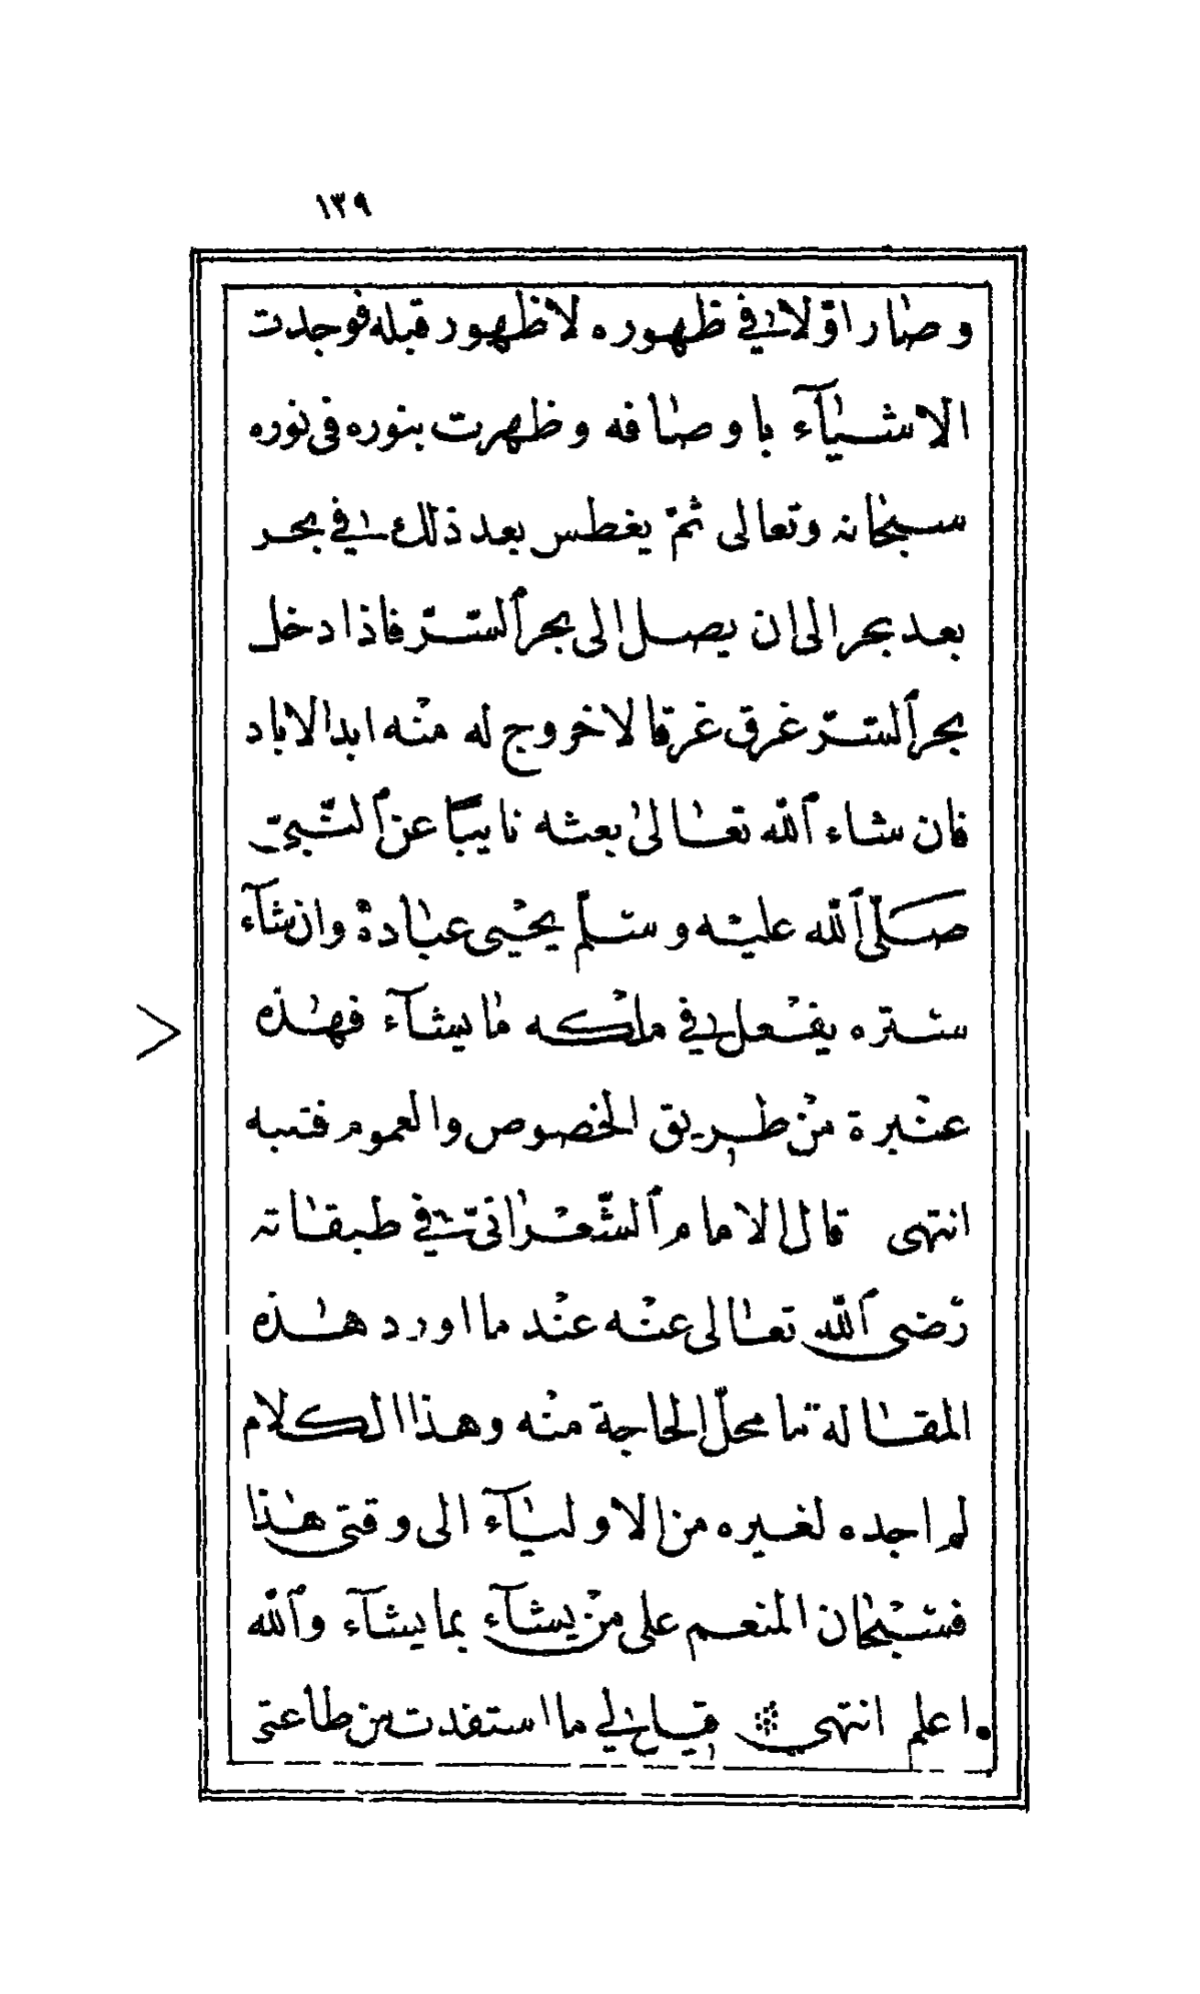 ١٣٩
وصار اوّلا في ظهوره لا ظهور قبله فوجدت
الاشيآء باوصافه وظهرت بنوره في نوره
سبحانه وتعالى ثمّ يغطس بعد ذلك في بحر
بعد بحر الى ان يصل الى بحر السّرّ فاذا دخل
بحر السّرّ غرق غرقا لا خروج له منه ابد الاباد
فان شاء الله تعالى بعثه نايبًا عن النّبيّ
صلّى الله عليه وسلّم يحيى عباده وان شآء
ستره يفعل في ملكه ما يشآء فهذه
عبرة من طريق الخصوص والعموم فتنبه
انتهى قال الامام الشّعرانيّ في طبقاته
رضى الله تعالى عنه عند ما اورد هذه
المقالة محلّ الحاجة منه وهذا الكلام
لم اجده لغيره من الاوليآء الى وقتى هذا
فسبحان المنعم على من يشآء بما يشآء والله
اعلم انتهى في ما استفدت من طاعتى